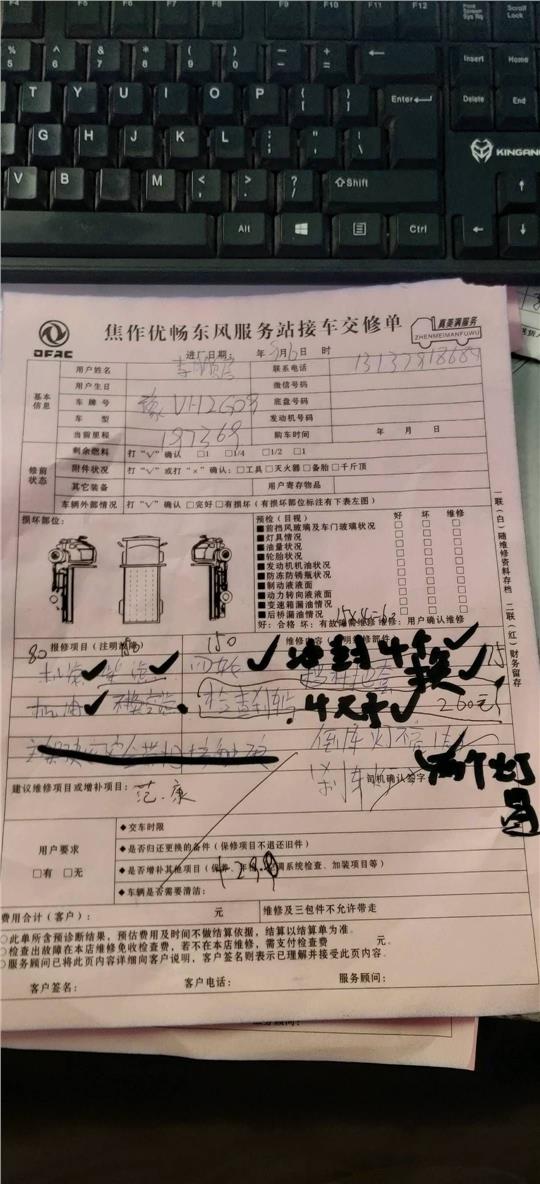 F5 F6 F7 F8 F9 F10 F11 F12 Print Screen Sys Rq Scroll Lock
% 5 ^ 6 & 7 * 8 ( 9 ) 0 — - + = ← Insert Home
T Y U I O P { [ } ] Enter Delete End
G H J K L : ; " ' KINGANG
V B M < , > . ? / ⇧Shift ↑
Alt Ctrl ← ↓
DFAC
焦作优畅东风服务站接车交修单
真美满服务
ZHENMEIMANFUWU
进站日期： 年 3月6日 时
基本信息
用户姓名 联系电话
用户生日 微信号码
车牌号 豫 底盘号
车型 发动机号码
当前里程 197369 购车时间 年 月 日
修前状态
剩余燃料 打“√”确认 □1 □1/4 □1/2 □1
附件状况 打“√”或打“×”确认：□工具 □灭火器 □备胎 □千斤顶
其它装备 用户寄存物品
车辆外部情况 打“√”确认 □完好 □有损坏（有损坏部位标注有下表左图）
损坏部位：
预检（目视） 好 坏 维修
■前挡风玻璃及车门玻璃状况
■灯具情况
■油量状况
■轮胎状况
■发动机机油状况
■防冻防锈瓶状况
■制动液液面
■动力转向液液面
■变速箱漏油情况
■后桥漏油情况
15×4=60
好：合格 坏：有故障需维修 维修：用户确认维修
一联（白）随维修资料存档
二联（红）财务留存
80 150 15
报修项目
机滤 柴滤 四轮 油封4个 换
机油 检查刹车片 4尺寸 260元
倒库灯不
刹车灯 两个灯
司机确认签字
建议维修项目或增补项目： 范康
用户要求
□有 □无
◆交车时限
◆是否归还更换的备件（保修项目不退还旧件）
◆是否增补其他项目（保养、年检、空调系统检查、加装项目等）
◆车辆是否需要清洁：
费用合计（客户）： 元 维修及三包件不允许带走
○此单所含预诊断结果，预估费用及时间不做结算依据，结算以结算单为准。
○检查出故障在本店维修免收检查费，若不在本店维修，需支付检查费 元。
○服务顾问已将此页内容详细向客户说明，客户签名则表示已理解并接受此页内容。
客户签名： 客户电话： 服务顾问：